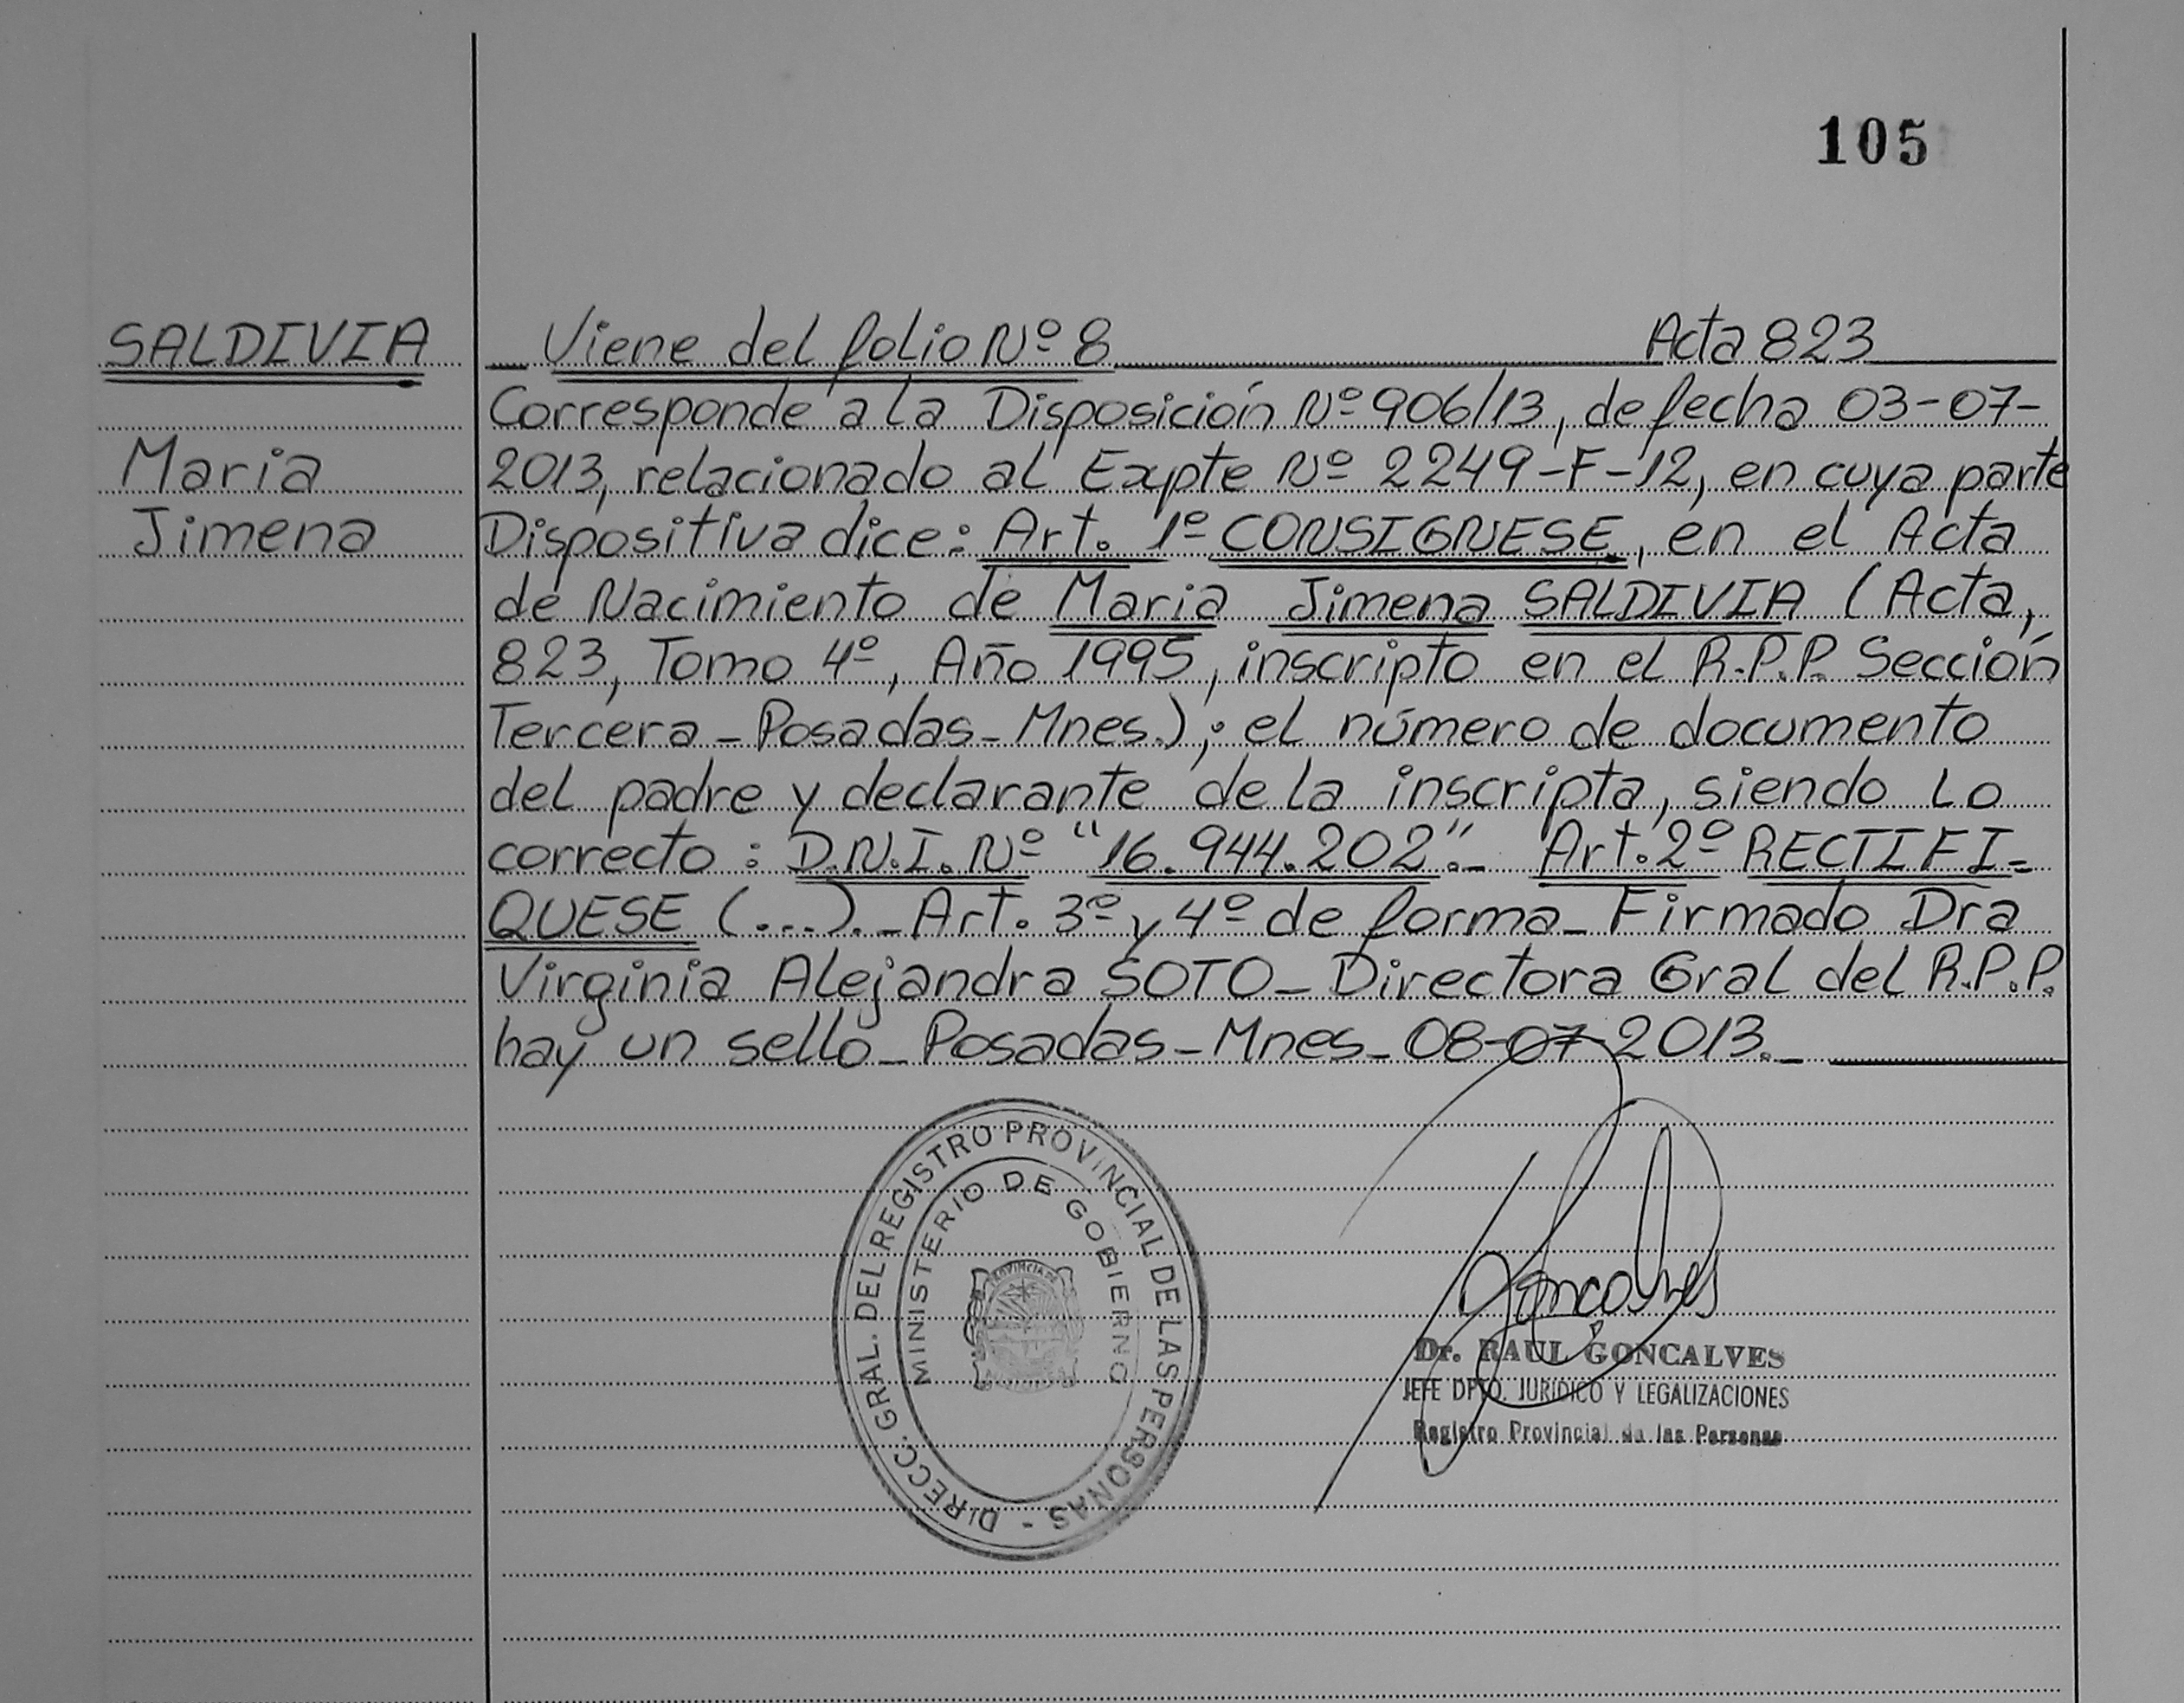 105
SALDIVIA
Maria
Jimena
Viene del folio Nº 8 Acta 823
Corresponde a la Disposición Nº 906/13, de fecha 03-07-
2013, relacionado al Expte Nº 2249-F-12, en cuya parte
Dispositiva dice: Art. 1º CONSIGNESE, en el Acta
de Nacimiento de Maria Jimena SALDIVIA (Acta,
823, Tomo 4º, Año 1995, inscripto en el R.P.P. Sección
Tercera_Posadas_Mnes.); el número de documento
del padre y declarante de la inscripta, siendo lo
correcto: D.N.I. Nº "16.944.202"._ Art. 2º RECTIFI_
QUESE (...)._Art. 3º y 4º de forma_ Firmado Dra
Virginia Alejandra SOTO_ Directora Gral del R.P.P.
hay un sello_ Posadas_Mnes_ 08-07-2013._
DIRECC. GRAL. DEL REGISTRO PROVINCIAL DE LAS PERSONAS -
MINISTERIO DE GOBIERNO
Goncalves
Dr. RAUL GONCALVES
JEFE DPTO. JURIDICO Y LEGALIZACIONES
Registro Provincial de las Personas